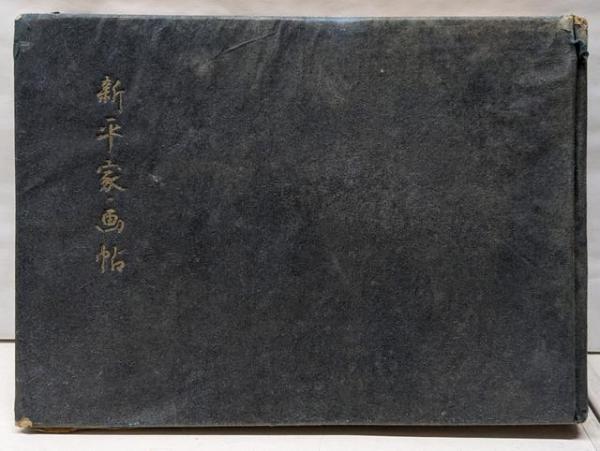 新平家・画帖